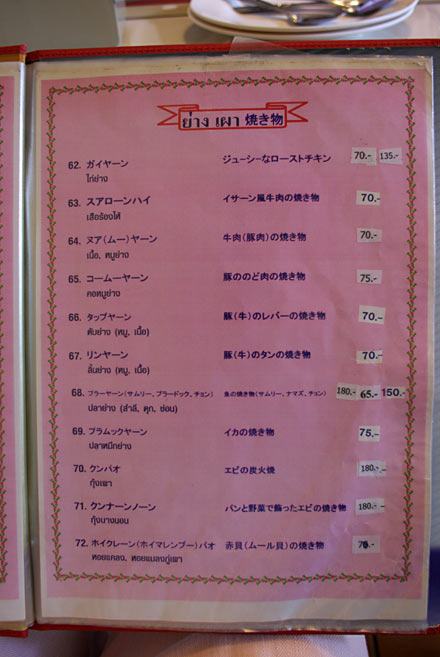 ย่าง เผา 焼き物
62. ガイヤーン ジューシーなローストチキン 70.- 135.-
ไก่ย่าง
63. スアローンハイ イサーン風牛肉の焼き物 70.-
เสือร้องไห้
64. ヌア(ムー)ヤーン 牛肉(豚肉)の焼き物 70.-
เนื้อ, หมูย่าง
65. コームーヤーン 豚ののど肉の焼き物 75.-
คอหมูย่าง
66. タップヤーン 豚(牛)のレバーの焼き物 70.-
ตับย่าง (หมู, เนื้อ)
67. リンヤーン 豚(牛)のタンの焼き物 70.-
ลิ้นย่าง (หมู, เนื้อ)
68. プラーヤーン(サムリー、プラードック、チョン) 魚の焼き物(サムリー、ナマズ、チョン) 180.- 65.- 150.-
ปลาย่าง (สำลี, ดุก, ช่อน)
69. プラムックヤーン イカの焼き物 75.-
ปลาหมึกย่าง
70. クンパオ エビの炭火焼 180.-
กุ้งเผา
71. クンナーンノーン パンと野菜で飾ったエビの焼き物 180.-
กุ้งนางนอน
72. ホイクレーン(ホイマレンプー)パオ 赤貝(ムール貝)の焼き物
หอยแคลง, หอยแมลงภู่เผา